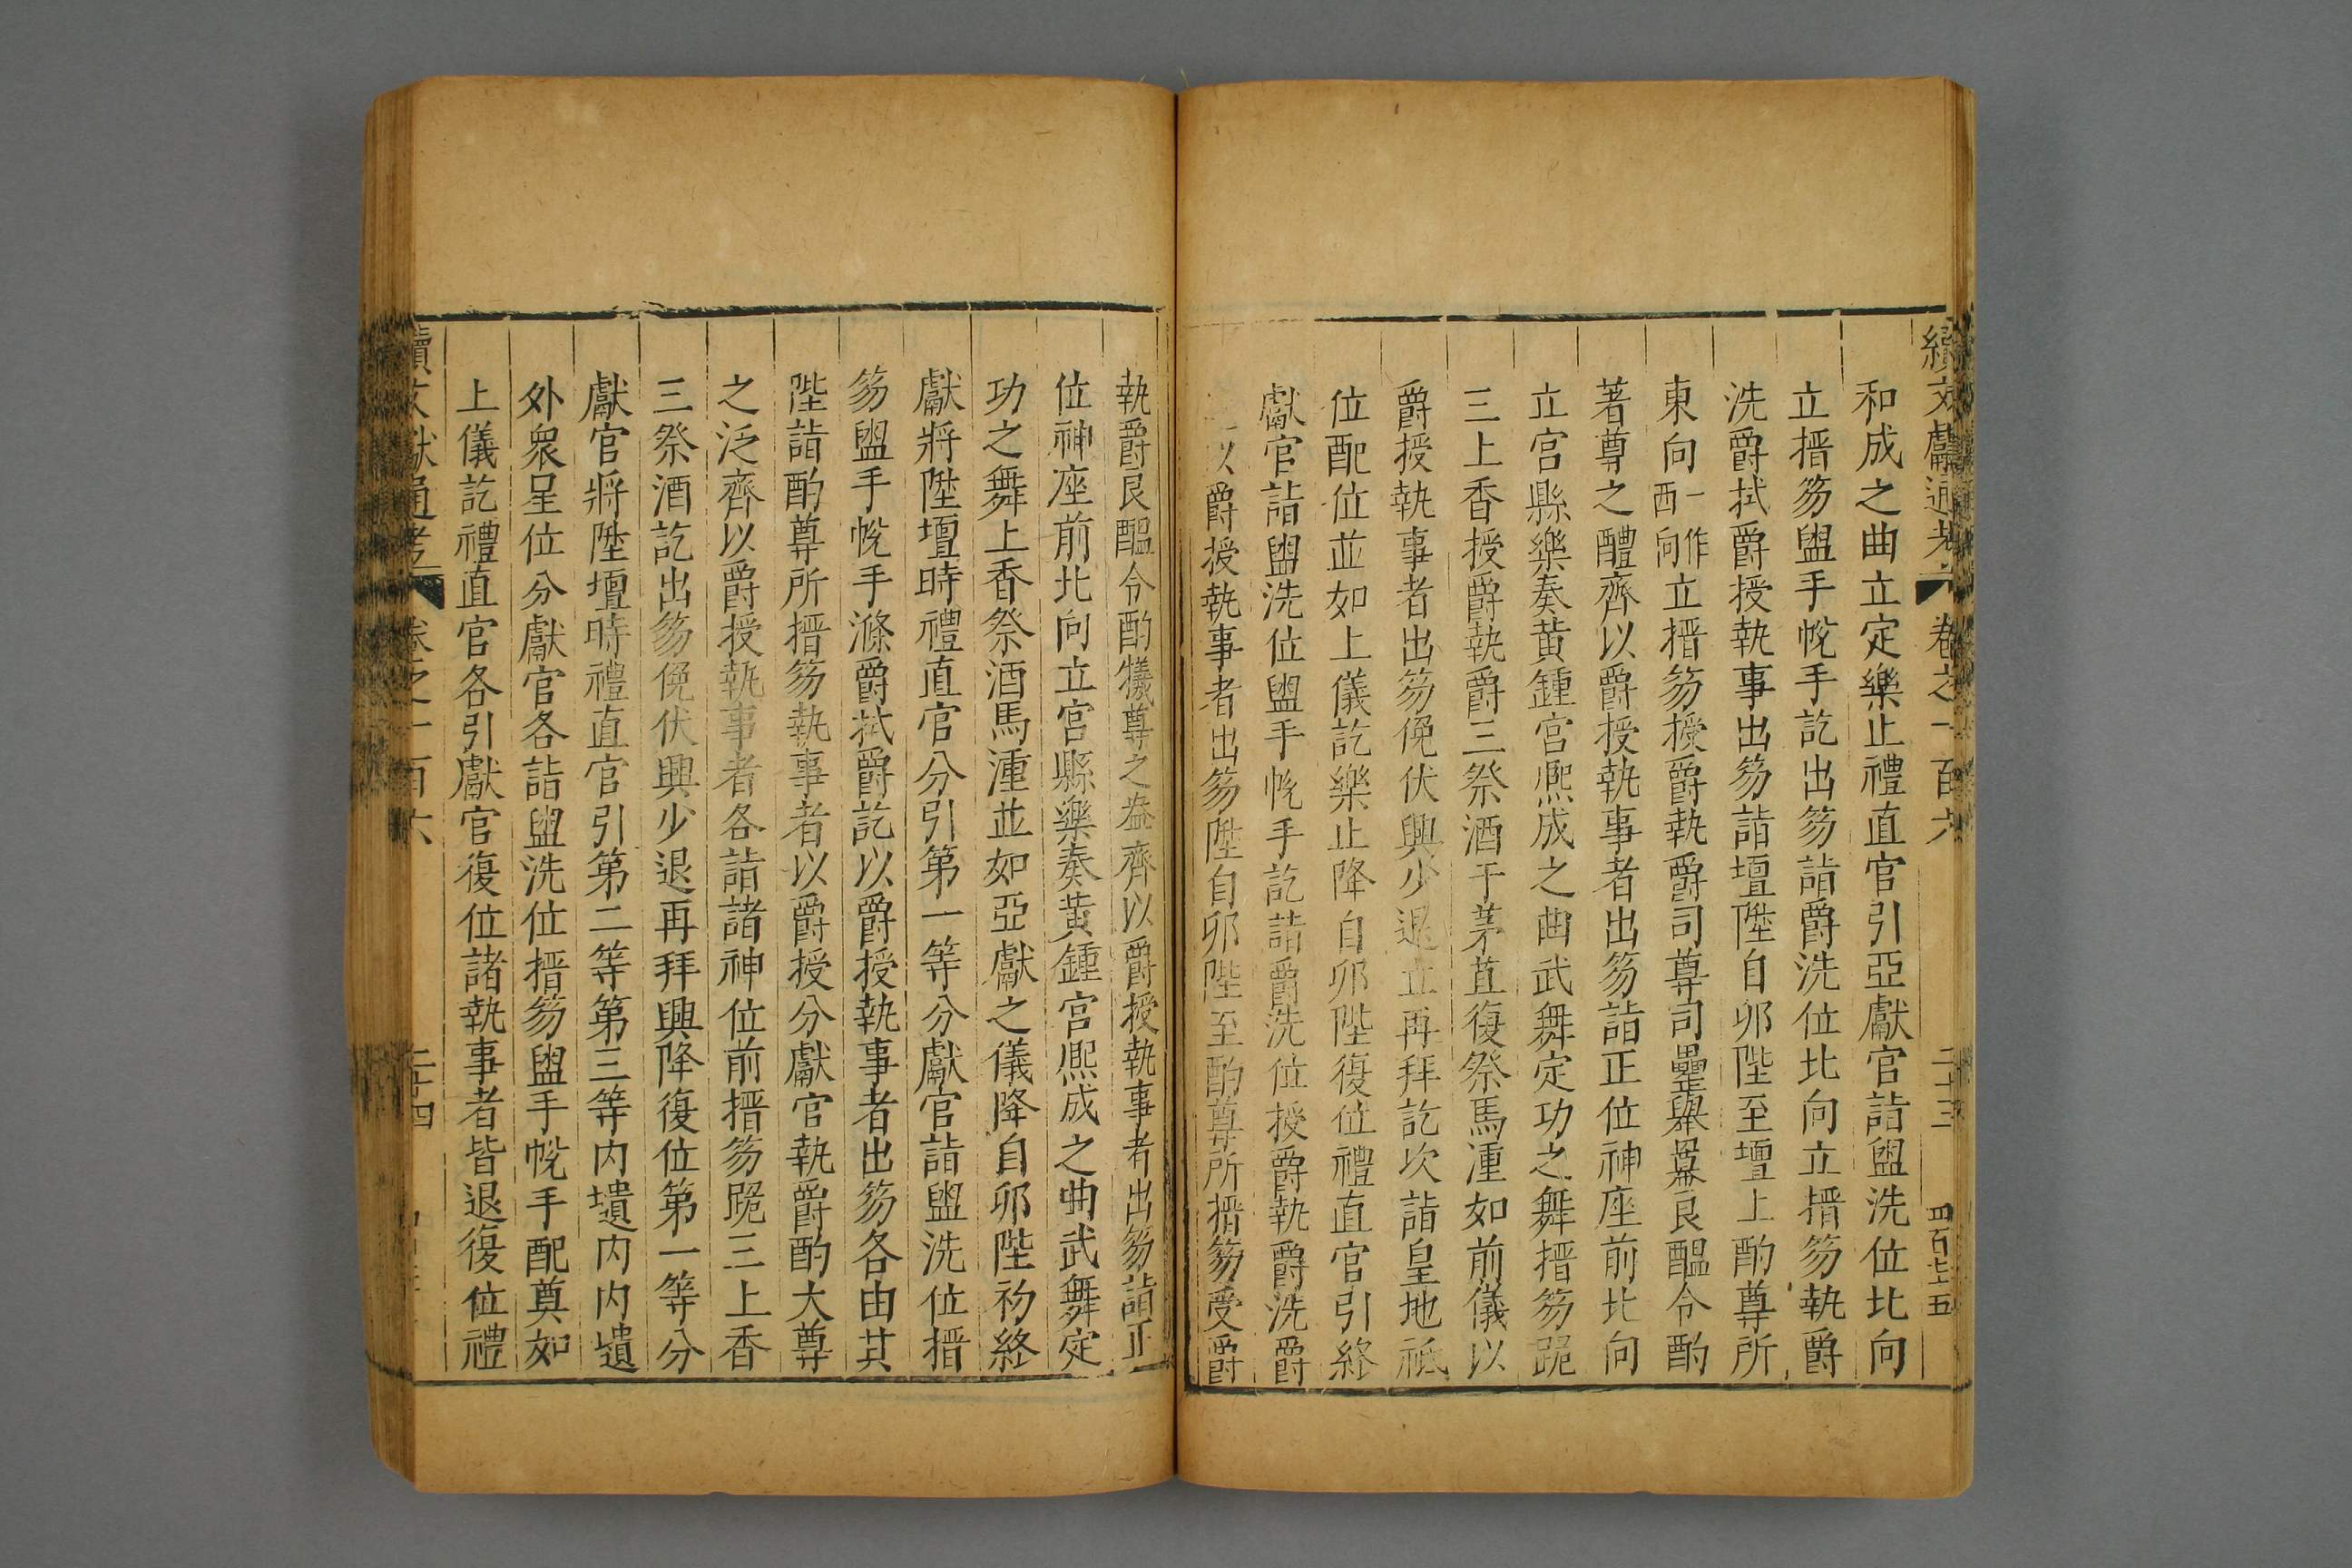 續文獻通考 卷之一百六 二十三 四百七十五
和成之曲立定樂止禮直官引亞獻官詣盥洗位北向
立搢笏盥手帨手訖出笏詣爵洗位北向立搢笏執爵
洗爵拭爵授執事出笏詣壇陞自卯陛至壇上酌尊所
東向一作西向立搢笏授爵執爵司尊司罍舉羃良醞令酌
著尊之醴齊以爵授執事者出笏詣正位神座前北向
立宮縣樂奏黃鍾宮熙成之曲武舞定功之舞搢笏跪
三上香授爵執爵三祭酒于茅苴復祭馬湩如前儀以
爵授執事者出笏俛伏興少退立再拜訖次詣皇地祗
位配位並如上儀訖樂止降自卯陛復位禮直官引終
獻官詣盥洗位盥手帨手訖詣爵洗位授爵執爵洗爵
以爵授執事者出笏陞自卯陛至酌尊所搢笏受爵
執爵良醞令酌犧尊之盎齊以爵授執事者出笏詣正
位神座前北向立宮縣樂奏黃鍾宮熙成之曲武舞定
功之舞上香祭酒馬湩並如亞獻之儀降自卯陛初終
獻將陞壇時禮直官分引第一等分獻官詣盥洗位搢
笏盥手帨手滌爵拭爵訖以爵授執事者出笏各由其
陛詣酌尊所搢笏執事者以爵授分獻官執爵酌大尊
之泛齊以爵授執事者各詣諸神位前搢笏跪三上香
三祭酒訖出笏俛伏興少退再拜興降復位第一等分
獻官將陞壇時禮直官引第二等第三等內壝內內壝
外衆星位分獻官各詣盥洗位搢笏盥手帨手配奠如
上儀訖禮直官各引獻官復位諸執事者皆退復位禮
續文獻通考 卷之一百六 二十四